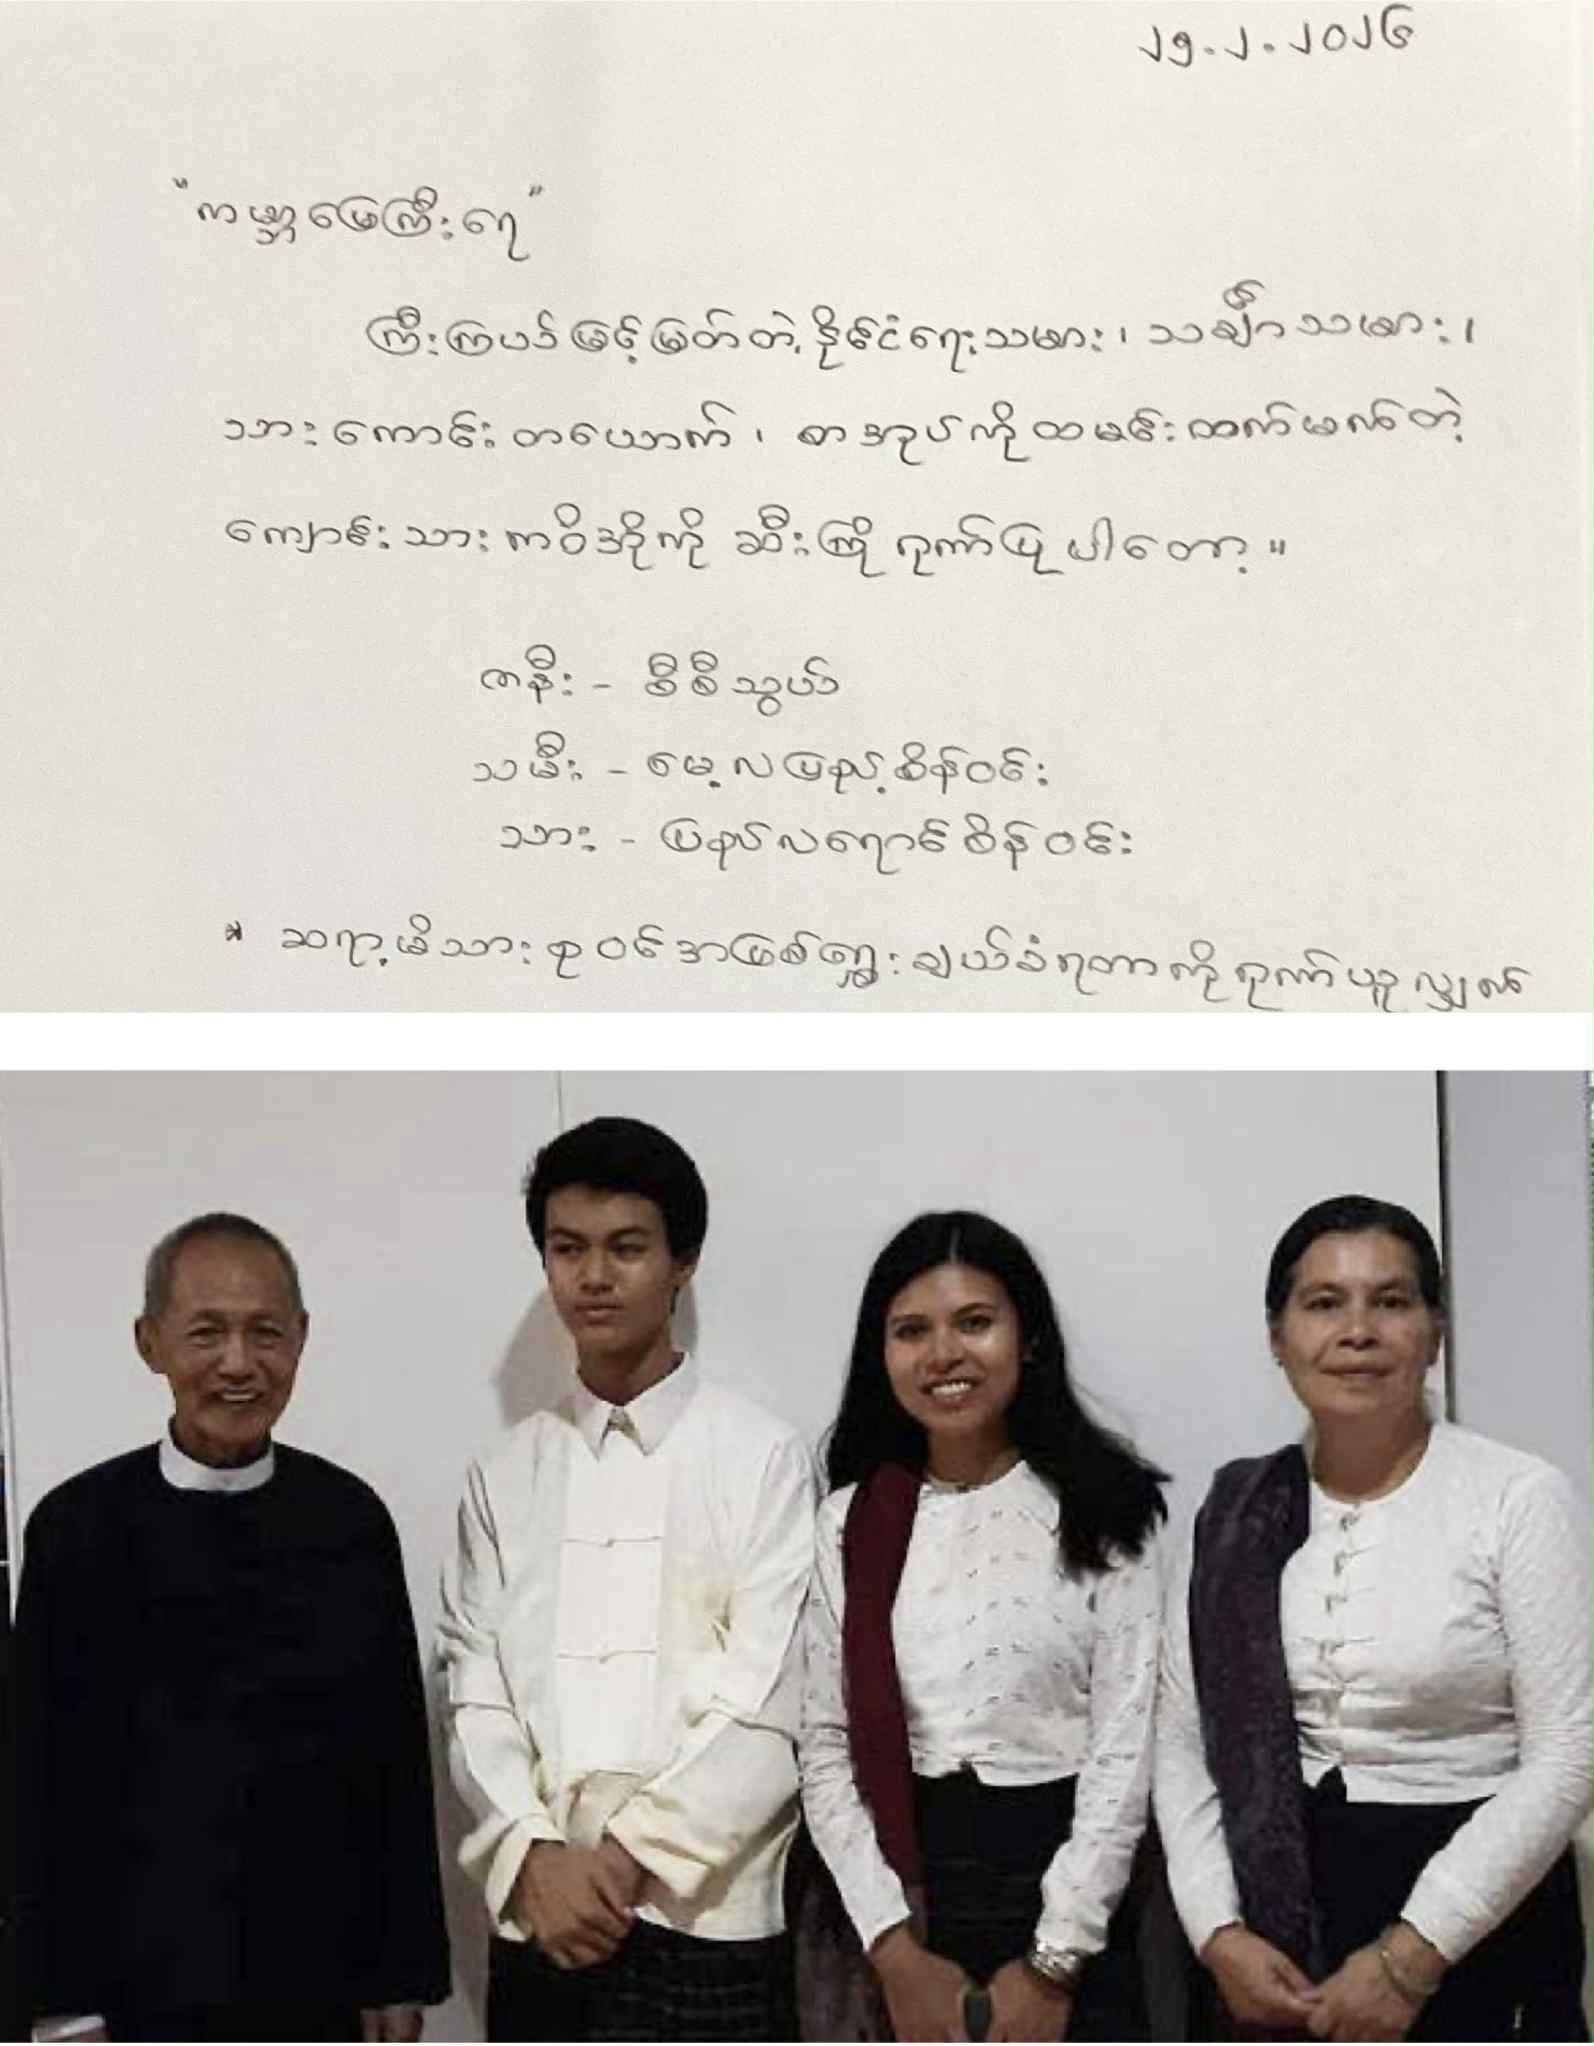 ၂၅.၂.၂၀၂၆
"ကမ္ဘာမြေကြီးရေ"
ကြီးကြယ်မြင့်မြတ်တဲ့ နိုင်ငံရေးသမား၊ သင်္ချာသမား၊
သားကောင်းတယောက်၊ စာအုပ်ကိုထမင်းထက်မက်တဲ့
ကျောင်းသားကဝိအိုကို ဆီးကြိုဂုဏ်ပြုပါတော့။
ဇနီး - စီစီသွယ်
သမီး - မေ့လပြည့်စိန်ဝင်း
သား - ပြည်လရောင်စိန်ဝင်း
* ဆရာ့မိသားစုဝင်အဖြစ်ရွေးချယ်ခံရတာကိုဂုဏ်ယူလျှက်